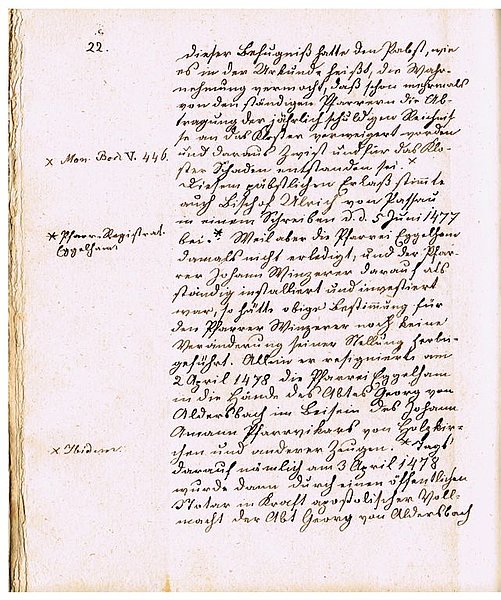 22.
dieser Befugniß hatte den Pabst, wie
es in der Urkunde heißt, die Wahr-
nehmung vermocht, daß schon mehrmals
von den ständigen Pfarrern die Ab-
tragung der jährlich schuldigen Reichnis-
se an das Kloster verweigert worden
× Mon. Boic. V. 446.
und daraus Zwist und für das Klo-
ster Schaden entstanden sei. ×
Diesem päbstlichen Erlaß stimmte
auch Bischof Ulrich von Passau
in einem Schreiben d. d. 5 Juni 1477
* Pfarr-Registrat.
Eggelham
bei. * Weil aber die Pfarrei Eggelham
damals nicht erledigt, und der Pfar-
rer Johann Winzerer darauf als
ständig installiert und investiert
war, so hätte obige Bestimmung für
den Pfarrer Winzerer noch keine
Veränderung seiner Stellung herbei-
geführt. Allein er resignierte am
2 April 1478 die Pfarrei Eggelham
in die Hände des Abtes Georg von
Aldersbach im Beisein des Johann
Amann Pfarrvikars von Holzkir-
× Ibidem.
chen und anderer Zeugen. × Tags
darauf nämlich am 3 April 1478
wurde dann durch einen öffentlichen
Notar in Kraft apostolischer Voll-
macht der Abt Georg von Aldersbach